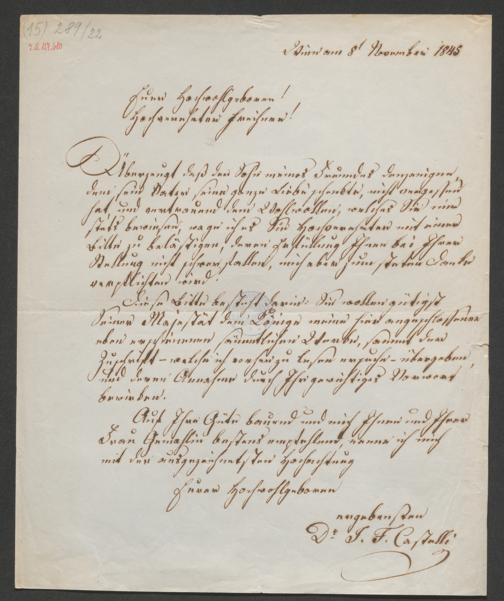 (15) 289/22
Wien am 8t November 1845
Euer Hochwohlgeboren!
Hochverehrter Freiherr!
Überzeugt daß der Sohn meines Freundes denjenigen,
dem sein Vater seine ganze Liebe schenkte, nicht vergessen
hat, und vertrauend dem Wohlwollen, welches Sie mir
stets bewiesen, wage ich es Sie Hochverehrter mit einer
Bitte zu belästigen, deren Erfüllung Ihnen bei Ihrer
Stellung nicht schwer fallen, mich aber zum steten Danke
verpflichten wird.
Diese Bitte besteht darin: Sie wollen gütigst
Seiner Majestät dem Könige meine hier angeschlossenen
eben erschienenen sämmtlichen Werke, sammt der
Zuschrift – welche ich vorher zu lesen ersuche – übergeben,
und deren Annahme durch Ihr gewichtiges Vorwort
bewirken.
Auf Ihre Güte bauend und mich Ihnen und Ihrer
Frau Gemahlin bestens empfehlend, nenne ich mich
mit der ausgezeichnetsten Hochachtung
Euer Hochwohlgeboren
ergebensten
Dr. I. F. Castelli